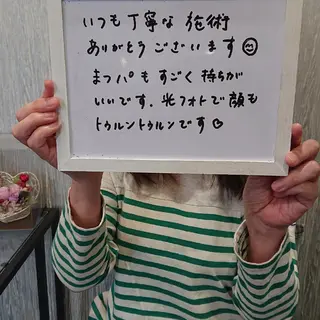 いつも丁寧な施術
ありがとうございます☺
まつパもすごく持ちが
いいです。光フォトで顔も
トゥルントゥルンです♡